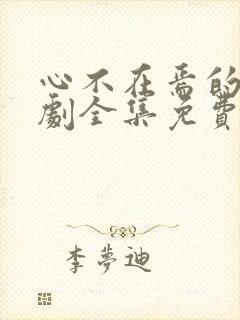 心不在焉的
劇全集免費
李夢迪